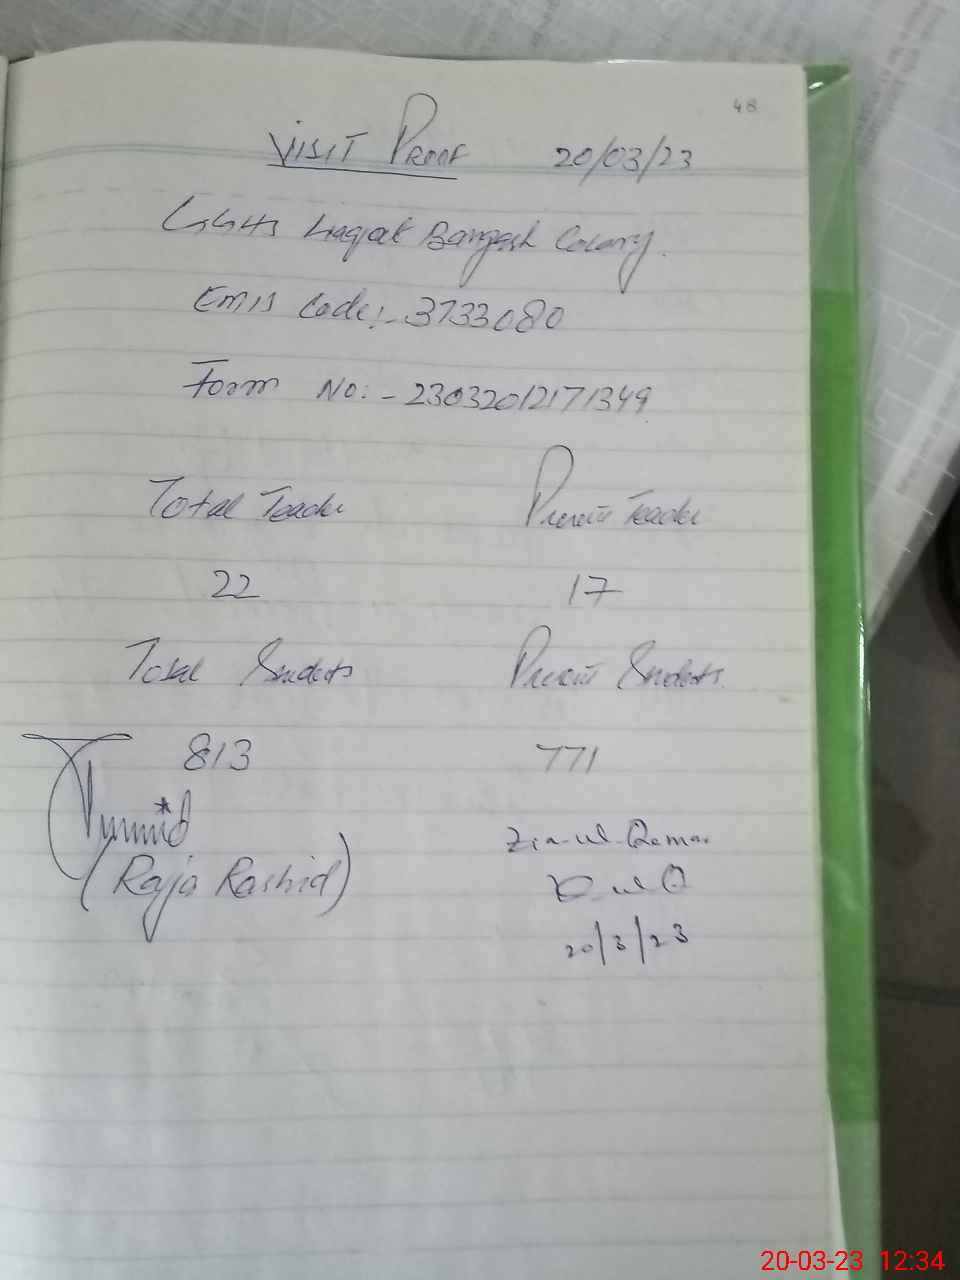 48
VISIT PROOF 20/03/23
GGHS Liaqat Bangash Colony.
EMIS Code:- 3733080
Form No:- 23032012171349
Total Teacher Present Teacher
22 17
Total Students Present Students.
813 771
(Raja Rashid)
Zia-ul-Qamar
20/3/23
20-03-23 12:34